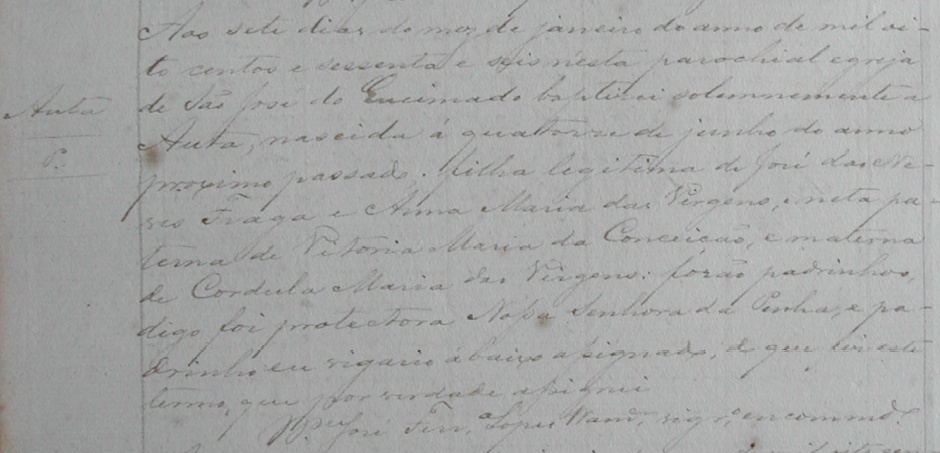 Aos sete dias do mez de janeiro do anno de mil oi-
to centos e sessenta e seis nésta parochial egreja
de São José do Queimado baptizei solemnemente a
Auta
Auta, nascida á quatorze de junho do anno
P.
proximo passado. filha legitima de José das Ne-
ves Fraga e Anna Maria das Virgens, e neta pa-
terna de Vitoria Maria da Conceicão, e materna
de Cordula Maria das Virgens: forão padrinhos,
digo foi protectora Nossa Senhora da Penha, e pa-
drinho eu vigario abaixo assignado; do que fiz este
termo, que por verdade assignei
José Ferr.ª Lopes Wand. vigr.º encommd.º